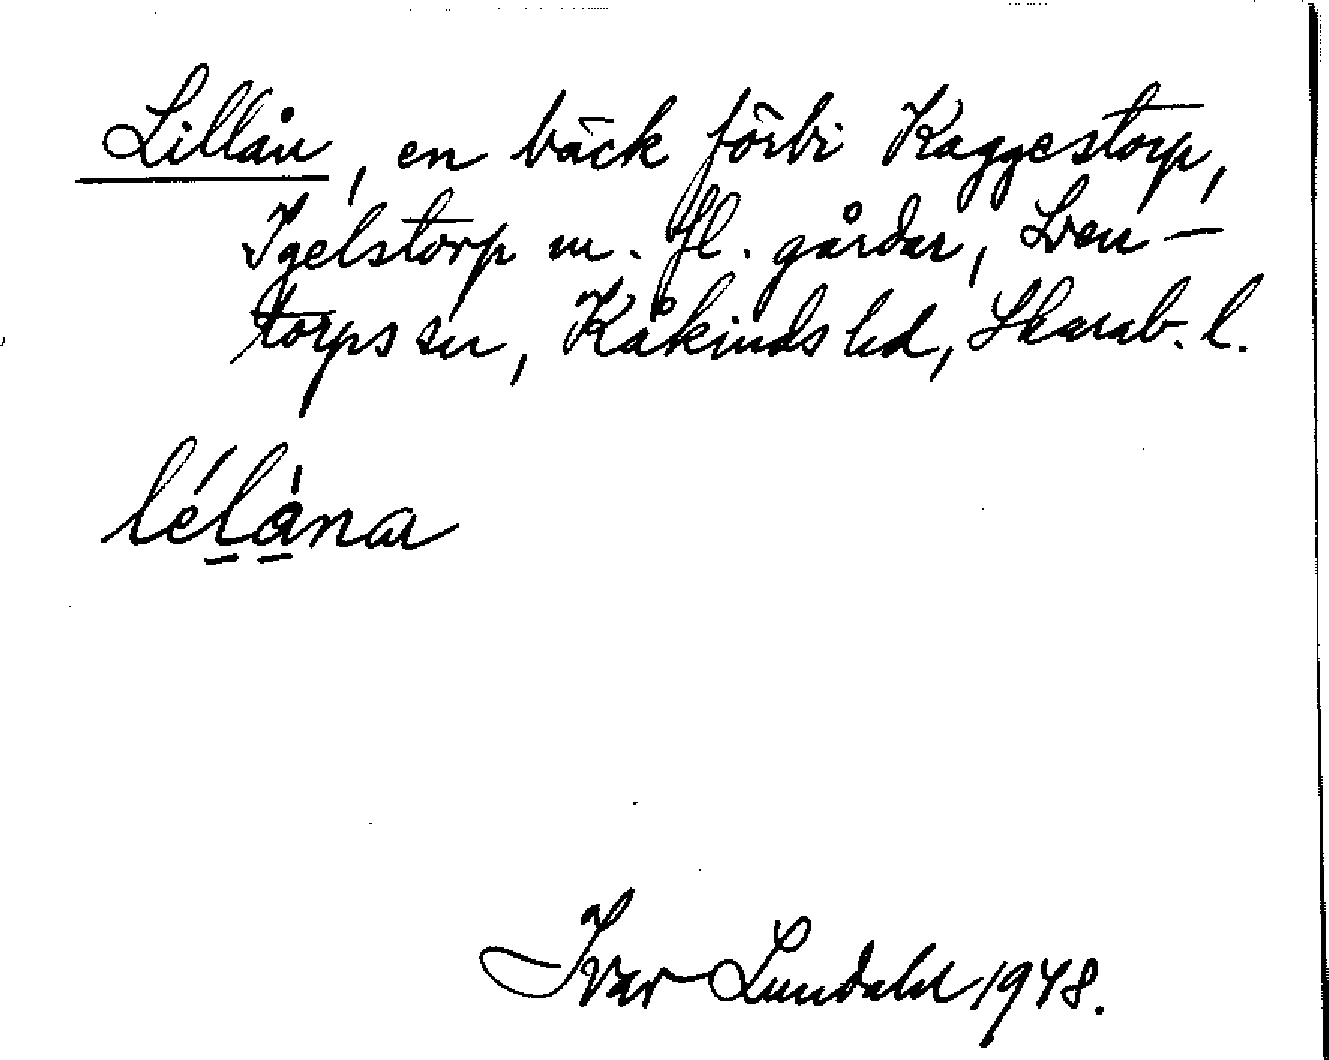 Lillån, en bäck förbi Kaggestorp,
Igelstorp m. fl. gårdar, Sven-
torps sn, Kåkinds hd, Skarab. l.
lélȧna
Ivar Lundahl 1948.